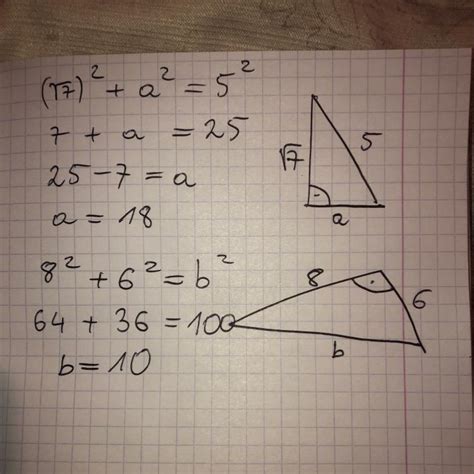 (√7)² + a² = 5²
7 + a = 25
25 - 7 = a
a = 18
√7
5
a
8² + 6² = b²
64 + 36 = 100
b = 10
8
6
b